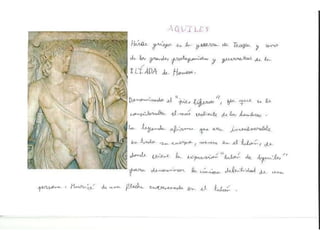 AQUILES
Héroe griego en la guerra de Troya y uno
de los grandes protagonistas y guerreros de la
ILÍADA de Homero.
Denominado el "pies ligeros", ya que se le
consideraba el más valiente de los hombres.
La leyenda afirma que era invulnerable
en todo su cuerpo, menos en el talón, de
donde viene la expresión "talón de Aquiles"
para denominar la única debilidad de una
persona. Murió de una flecha envenenada en el talón.